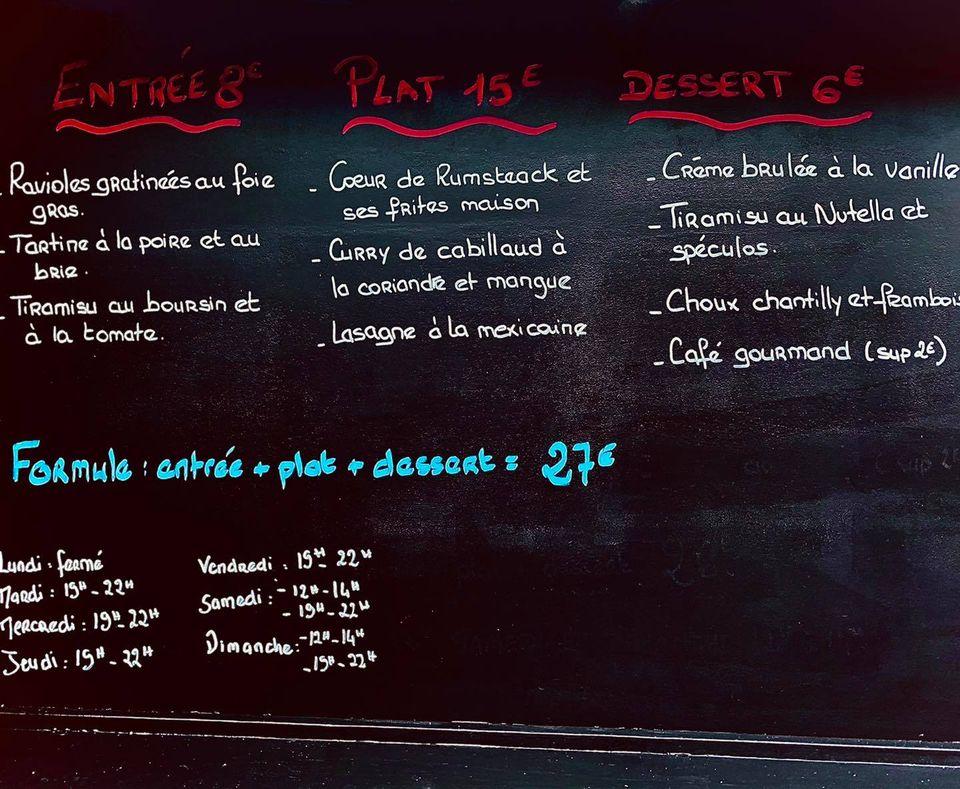 ENTRÉE 8€
- Ravioles gratineés au foie
gras.
- Tartine à la poire et au
brie.
- Tiramisu au boursin et
à la tomate.
PLAT 15€
- Coeur de Rumsteack et
ses frites maison
- Curry de cabillaud à
la coriandre et mangue
- Lasagne à la mexicaine
DESSERT 6€
- Crème brulée à la vanille
- Tiramisu au Nutella et
spéculos.
- Choux chantilly et frambois
- Café gourmand (sup 2€)
Formule : entrée + plat + dessert = 27€
Lundi : fermé
Mardi : 19H - 22H
Mercredi : 19H - 22H
Jeudi : 19H - 22H
Vendredi : 19H - 22H
Samedi : - 12H - 14H
- 19H - 22H
Dimanche : - 12H - 14H
- 19H - 22H